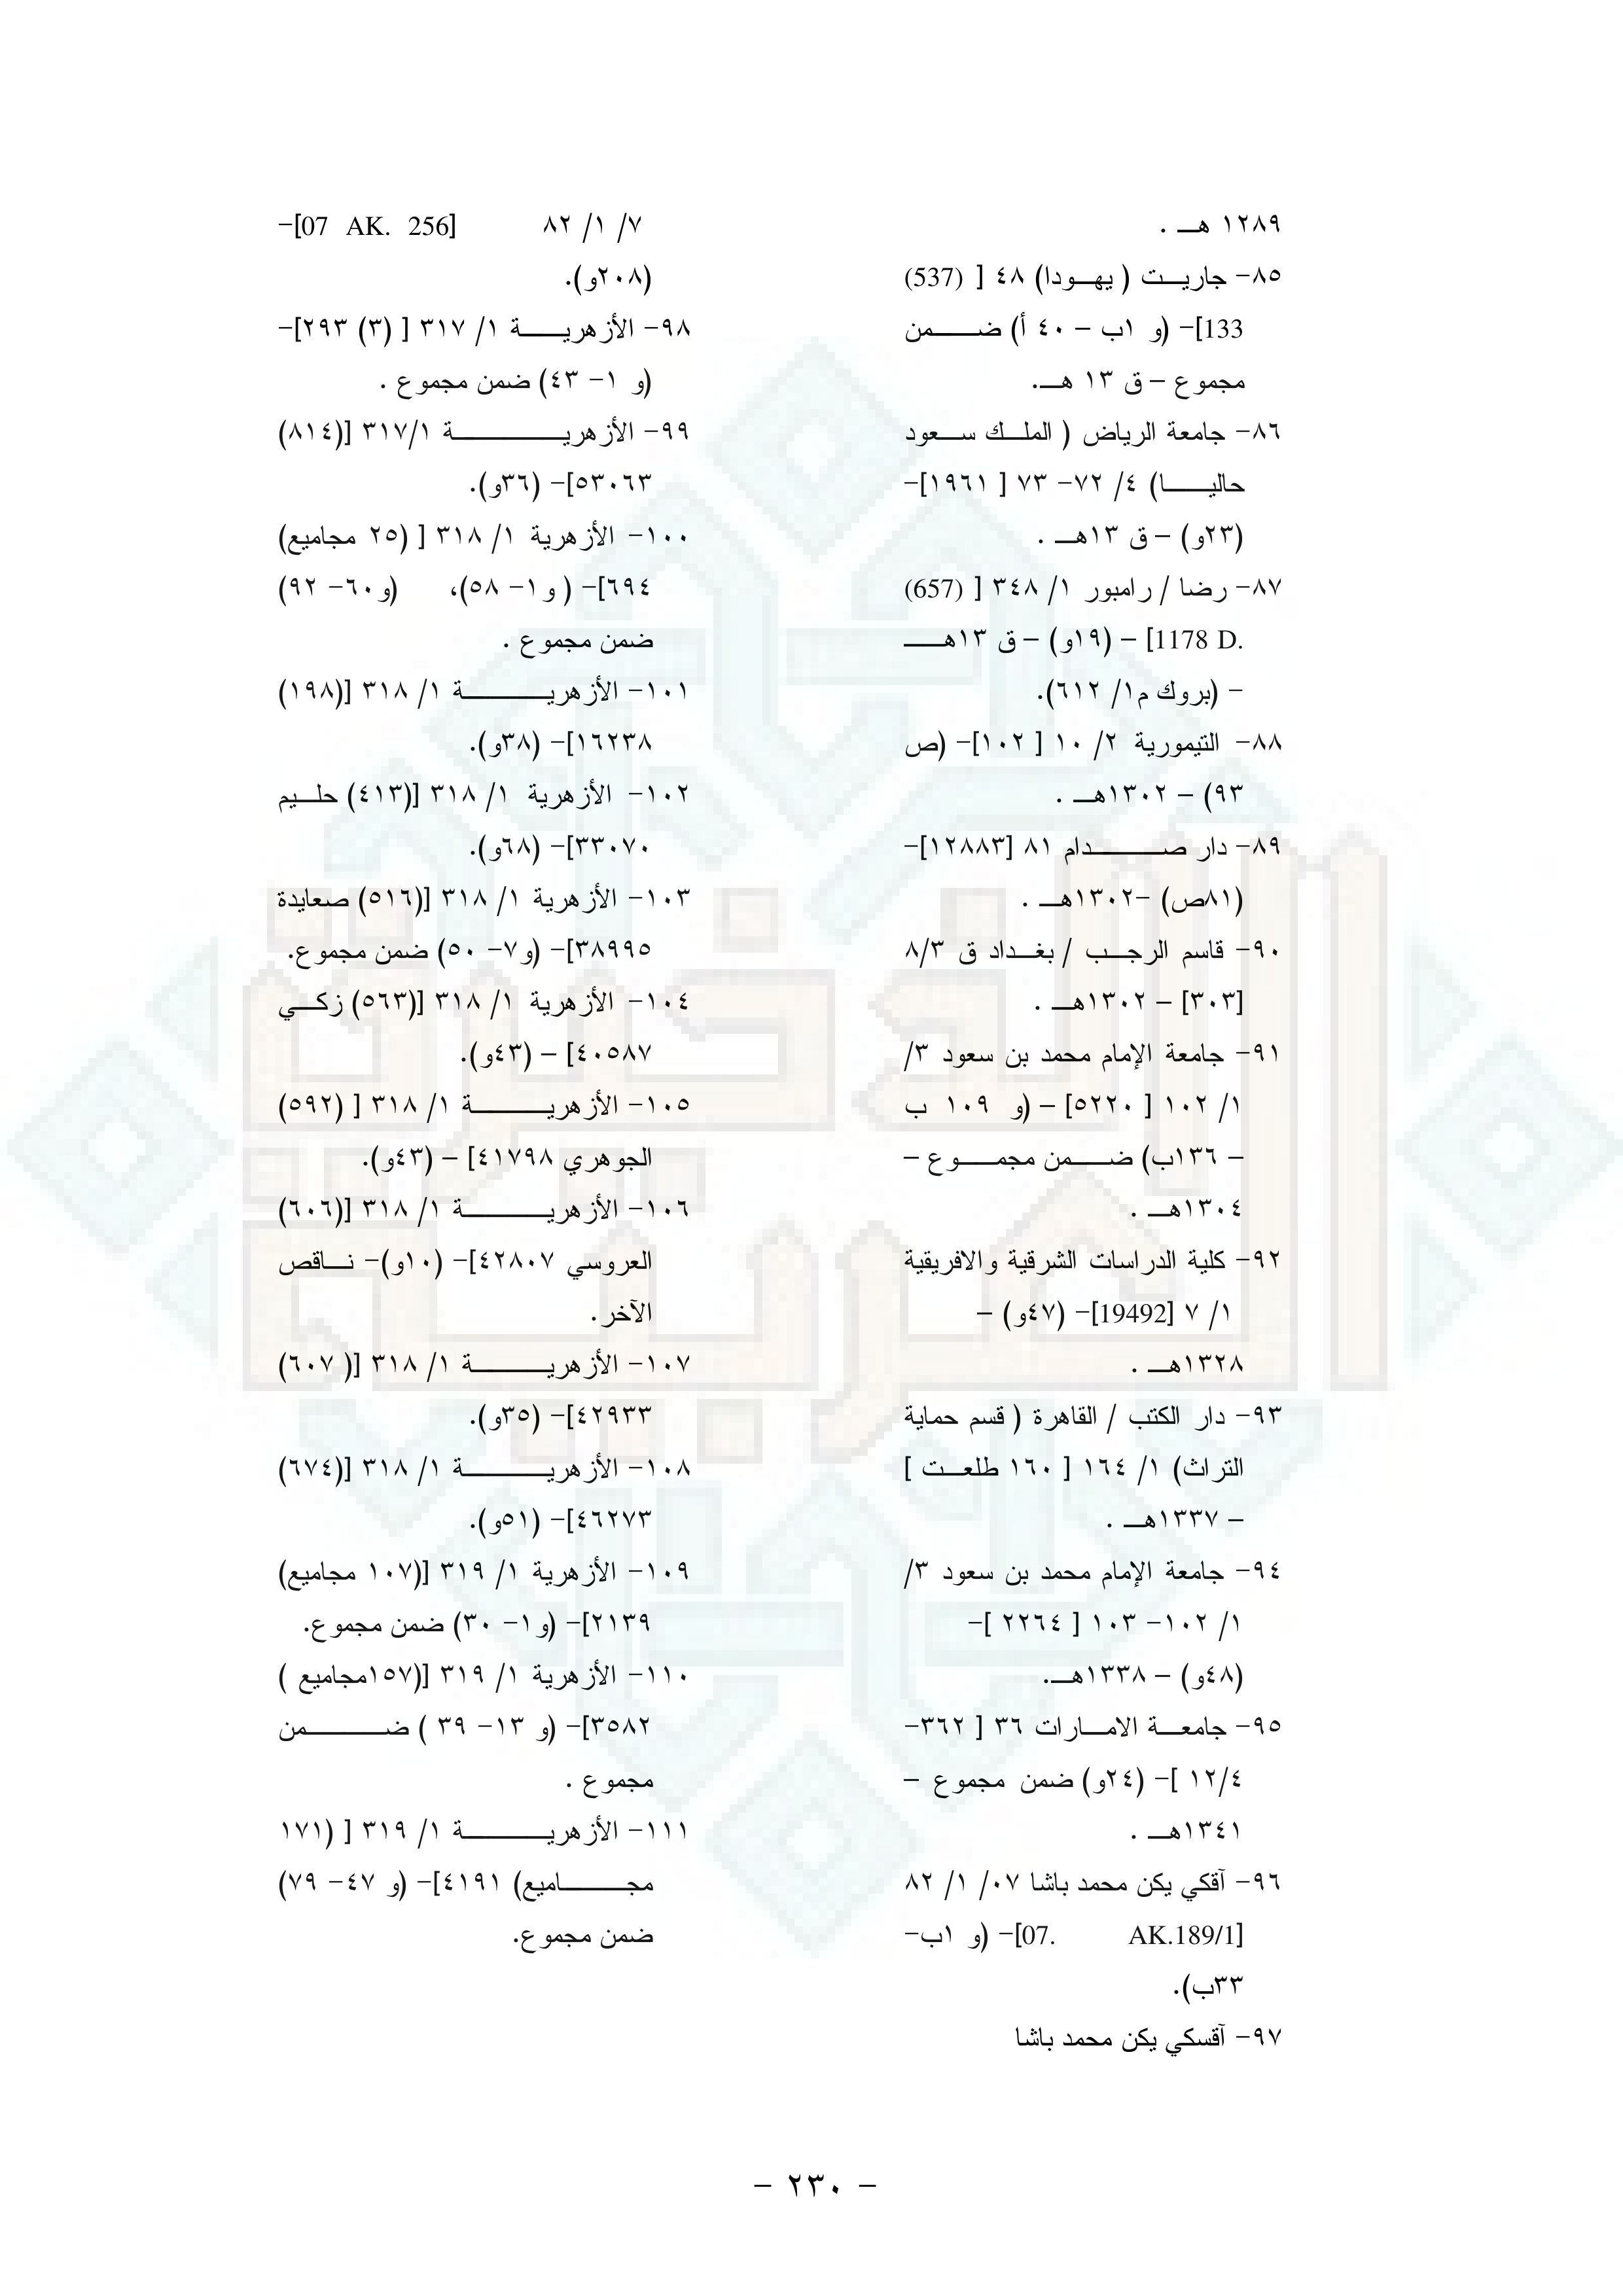 ١٢٨٩ هـ .
٨٥- جاريت ( يهودا) ٤٨ [ (537)
133]- (و ١ب – ٤٠ أ) ضمن
مجموع – ق ١٣ هـ.
٨٦- جامعة الرياض ( الملك سعود
حاليا) ٤/ ٧٢- ٧٣ [ ١٩٦١]-
(٢٣و) – ق ١٣هـ .
٨٧- رضا / رامبور ١/ ٣٤٨ [ (657)
1178 D.] – (١٩و) – ق ١٣هـ
– (بروك م١/ ٦١٢).
٨٨- التيمورية ٢/ ١٠ [ ١٠٢]- (ص
٩٣) – ١٣٠٢هـ .
٨٩- دار صدام ٨١ [١٢٨٨٣]-
(٨١ص) -١٣٠٢هـ .
٩٠- قاسم الرجب / بغداد ق ٨/٣
[٣٠٣] – ١٣٠٢هـ .
٩١- جامعة الإمام محمد بن سعود ٣/
١/ ١٠٢ [ ٥٢٢٠] – (و ١٠٩ ب
– ١٣٦ب) ضمن مجموع –
١٣٠٤هـ .
٩٢- كلية الدراسات الشرقية والافريقية
١/ ٧ [19492]- (٤٧و) –
١٣٢٨هـ .
٩٣- دار الكتب / القاهرة ( قسم حماية
التراث) ١/ ١٦٤ [ ١٦٠ طلعت ]
– ١٣٣٧هـ .
٩٤- جامعة الإمام محمد بن سعود ٣/
١/ ١٠٢- ١٠٣ [ ٢٢٦٤ ]-
(٤٨و) – ١٣٣٨هـ.
٩٥- جامعة الامارات ٣٦ [ ٣٦٢-
١٢/٤ ]- (٢٤و) ضمن مجموع –
١٣٤١هـ .
٩٦- آقكي يكن محمد باشا ٠٧/ ١/ ٨٢
[07. AK.189/1]- (و ١ب-
٣٣ب).
٩٧- آقسكي يكن محمد باشا
٧/ ١/ ٨٢ [07 AK. 256]-
(٢٠٨و).
٩٨- الأزهرية ١/ ٣١٧ [ (٣) ٢٩٣]-
(و ١- ٤٣) ضمن مجموع .
٩٩- الأزهرية ٣١٧/١ [(٨١٤)
٥٣٠٦٣]- (٣٦و).
١٠٠- الأزهرية ١/ ٣١٨ [ (٢٥ مجاميع)
٦٩٤]- ( و١- ٥٨)، (و٦٠- ٩٢)
ضمن مجموع .
١٠١- الأزهرية ١/ ٣١٨ [(١٩٨)
١٦٢٣٨]- (٣٨و).
١٠٢- الأزهرية ١/ ٣١٨ [(٤١٣) حليم
٣٣٠٧٠]- (٦٨و).
١٠٣- الأزهرية ١/ ٣١٨ [(٥١٦) صعايدة
٣٨٩٩٥]- (و٧- ٥٠) ضمن مجموع.
١٠٤- الأزهرية ١/ ٣١٨ [(٥٦٣) زكي
٤٠٥٨٧] – (٤٣و).
١٠٥- الأزهرية ١/ ٣١٨ [ (٥٩٢)
الجوهري ٤١٧٩٨] – (٤٣و).
١٠٦- الأزهرية ١/ ٣١٨ [(٦٠٦)
العروسي ٤٢٨٠٧]- (١٠و)- ناقص
الآخر.
١٠٧- الأزهرية ١/ ٣١٨ [( ٦٠٧)
٤٢٩٣٣]- (٣٥و).
١٠٨- الأزهرية ١/ ٣١٨ [(٦٧٤)
٤٦٢٧٣]- (٥١و).
١٠٩- الأزهرية ١/ ٣١٩ [(١٠٧ مجاميع)
٢١٣٩]- (و١- ٣٠) ضمن مجموع.
١١٠- الأزهرية ١/ ٣١٩ [(١٥٧مجاميع )
٣٥٨٢]- (و ١٣- ٣٩ ) ضمن
مجموع .
١١١- الأزهرية ١/ ٣١٩ [ (١٧١
مجاميع) ٤١٩١]- (و ٤٧- ٧٩)
ضمن مجموع.
– ٢٣٠ –